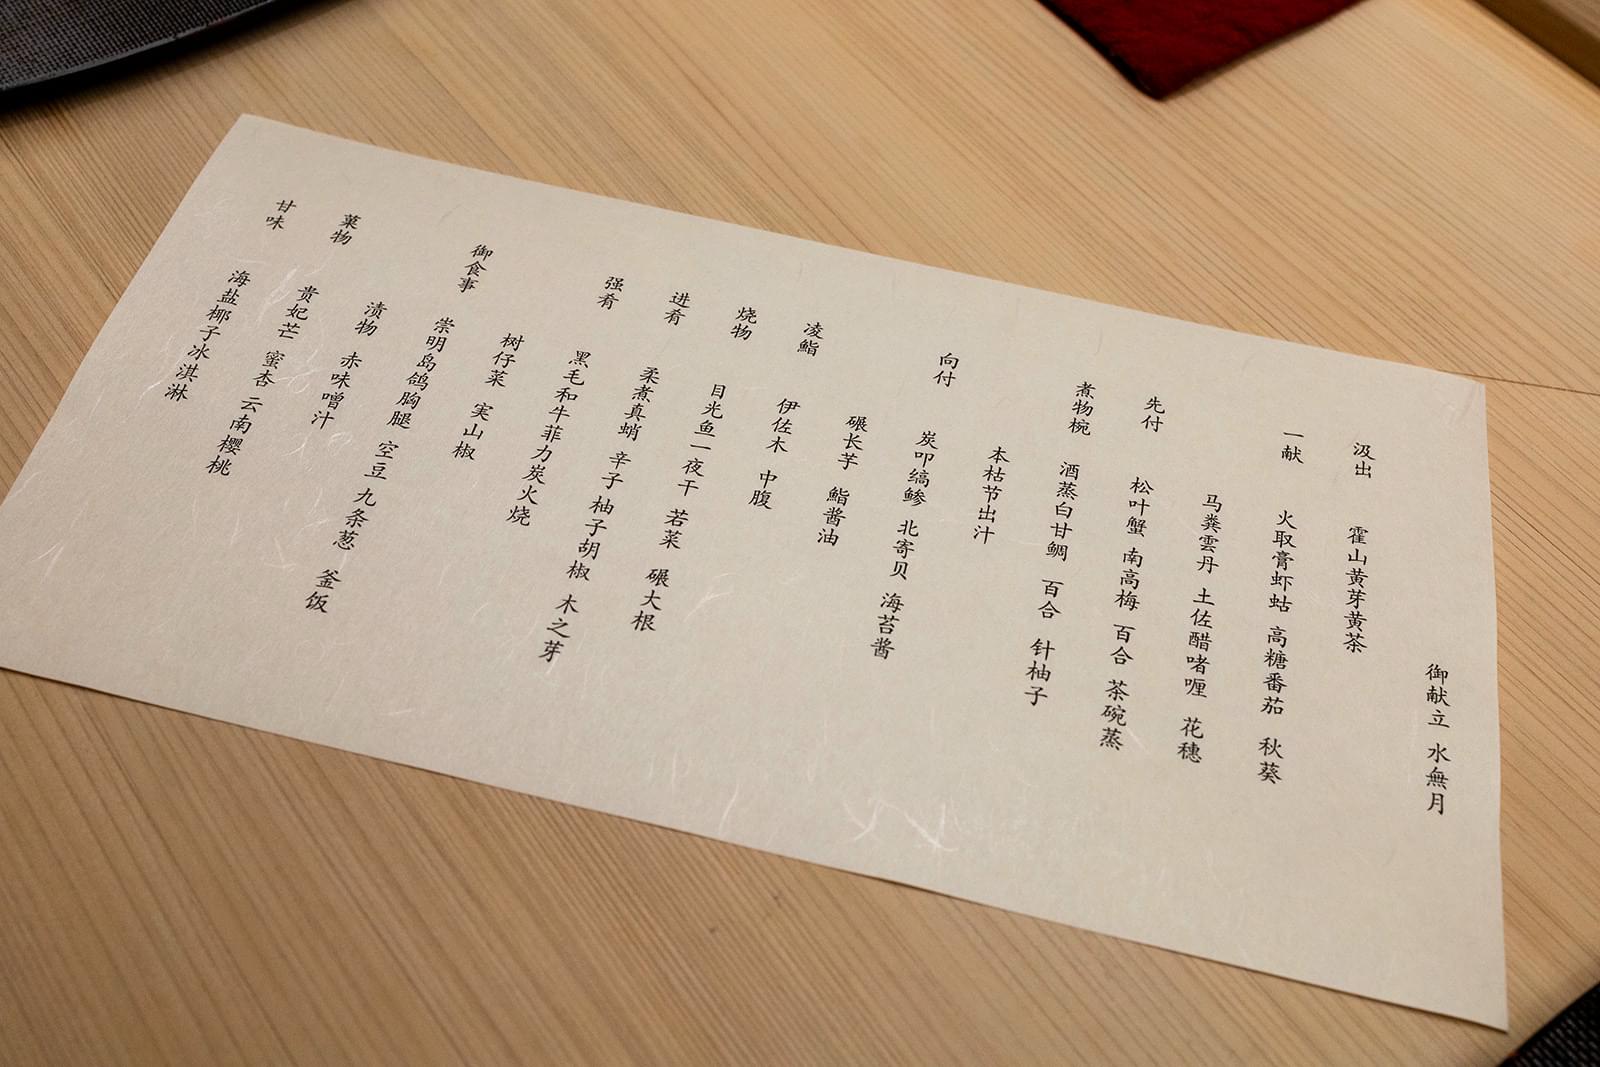 御献立 水無月
汲出 霍山黄芽黄茶
一献 火取膏虾蛄 高糖番茄 秋葵
马粪雲丹 土佐醋啫喱 花穗
先付 松叶蟹 南高梅 百合 茶碗蒸
煮物椀 酒蒸白甘鲷 百合 针柚子
本枯节出汁
向付 炭叩缟鲹 北寄贝 海苔酱
碾长芋 鮨酱油
凌鮨 伊佐木 中腹
烧物 目光鱼一夜干 若菜 碾大根
进肴 柔煮真蛸 辛子 柚子胡椒 木之芽
强肴 黑毛和牛菲力炭火烧
树仔菜 実山椒
御食事 崇明岛鸽胸腿 空豆 九条葱 釜饭
渍物 赤味噌汁
菓物 贵妃芒 蜜杏 云南樱桃
甘味 海盐椰子冰淇淋